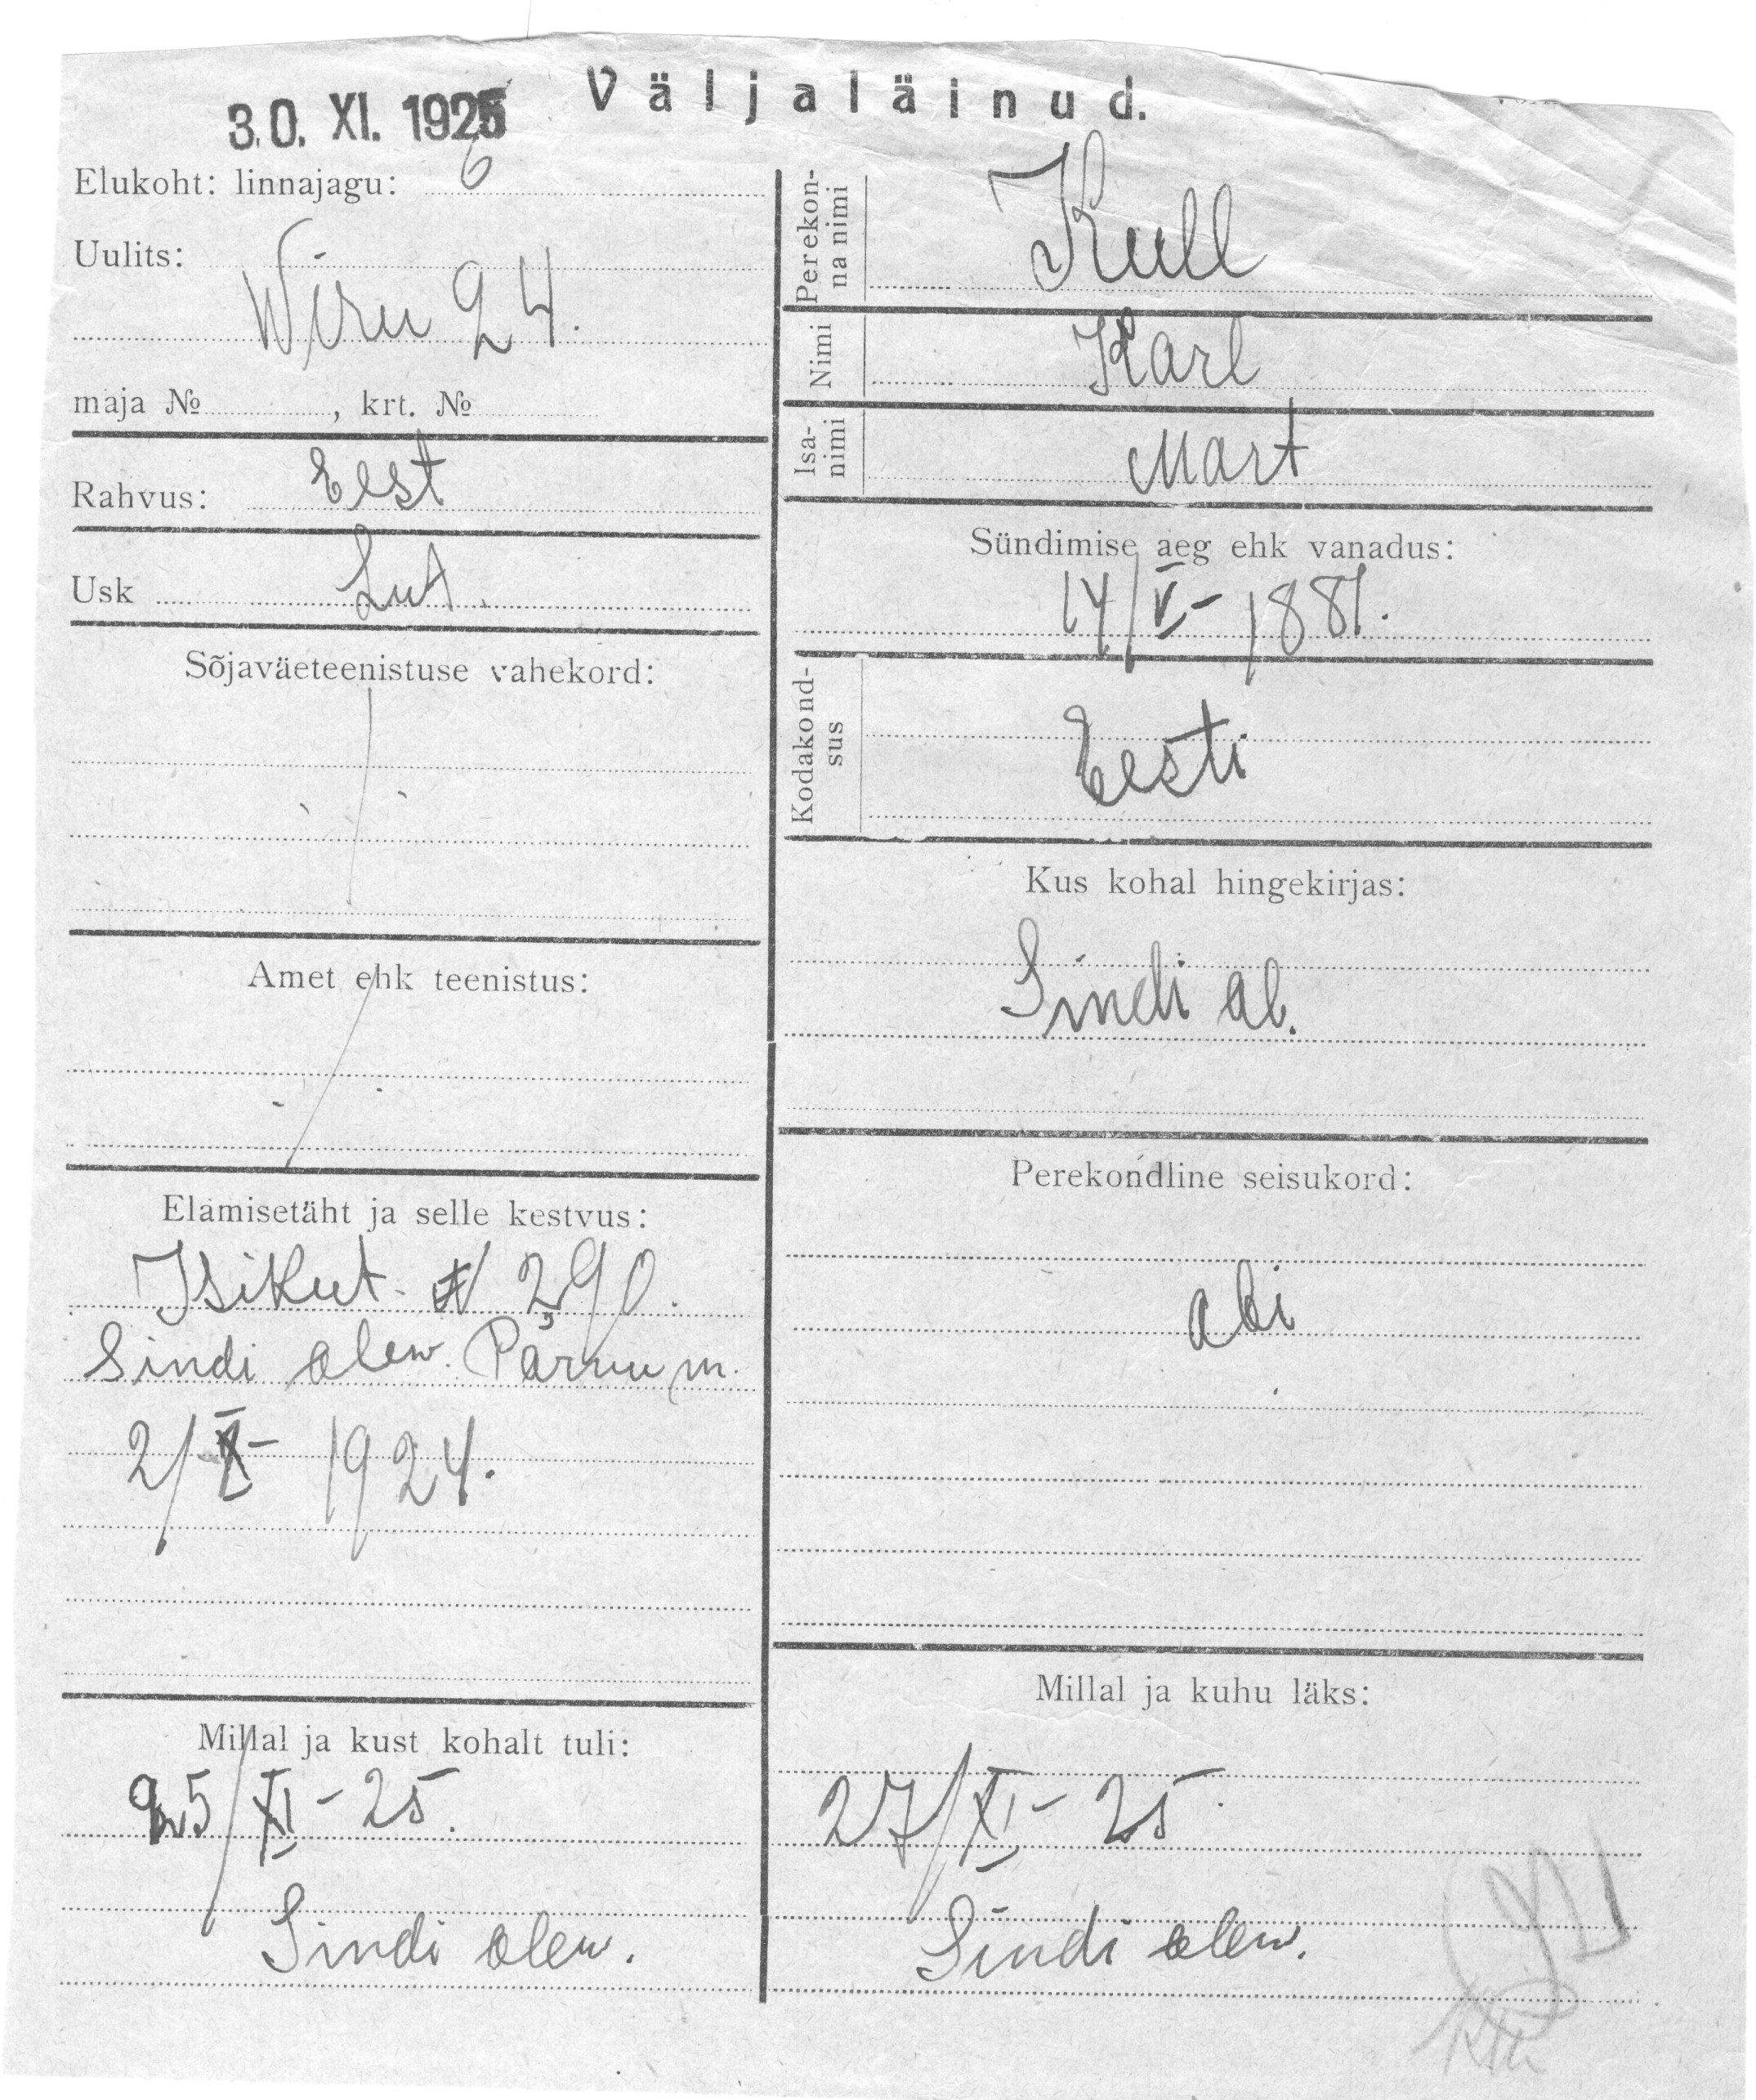 30. XI. 1925 Väljaläinud.
Elukoht: linnajagu: 6
Uulits:
Wiru 24.
maja № , krt. №
Rahvus: Eest
Usk Lut.
Sõjaväeteenistuse vahekord:
Amet ehk teenistus:
Elamisetäht ja selle kestvus:
Isikut. № 290.
Sindi alew. Pärnu m.
2/X- 1924.
Millal ja kust kohalt tuli:
25/XI - 25.
Sindi alew.
Perekon-
na nimi Kull
Nimi Karl
Isa-
nimi Mart
Sündimise aeg ehk vanadus:
14/V- 1881.
Kodakond-
sus Eesti
Kus kohal hingekirjas:
Sindi al.
Perekondline seisukord:
abi
Millal ja kuhu läks:
27/XI - 25.
Sindi alew.